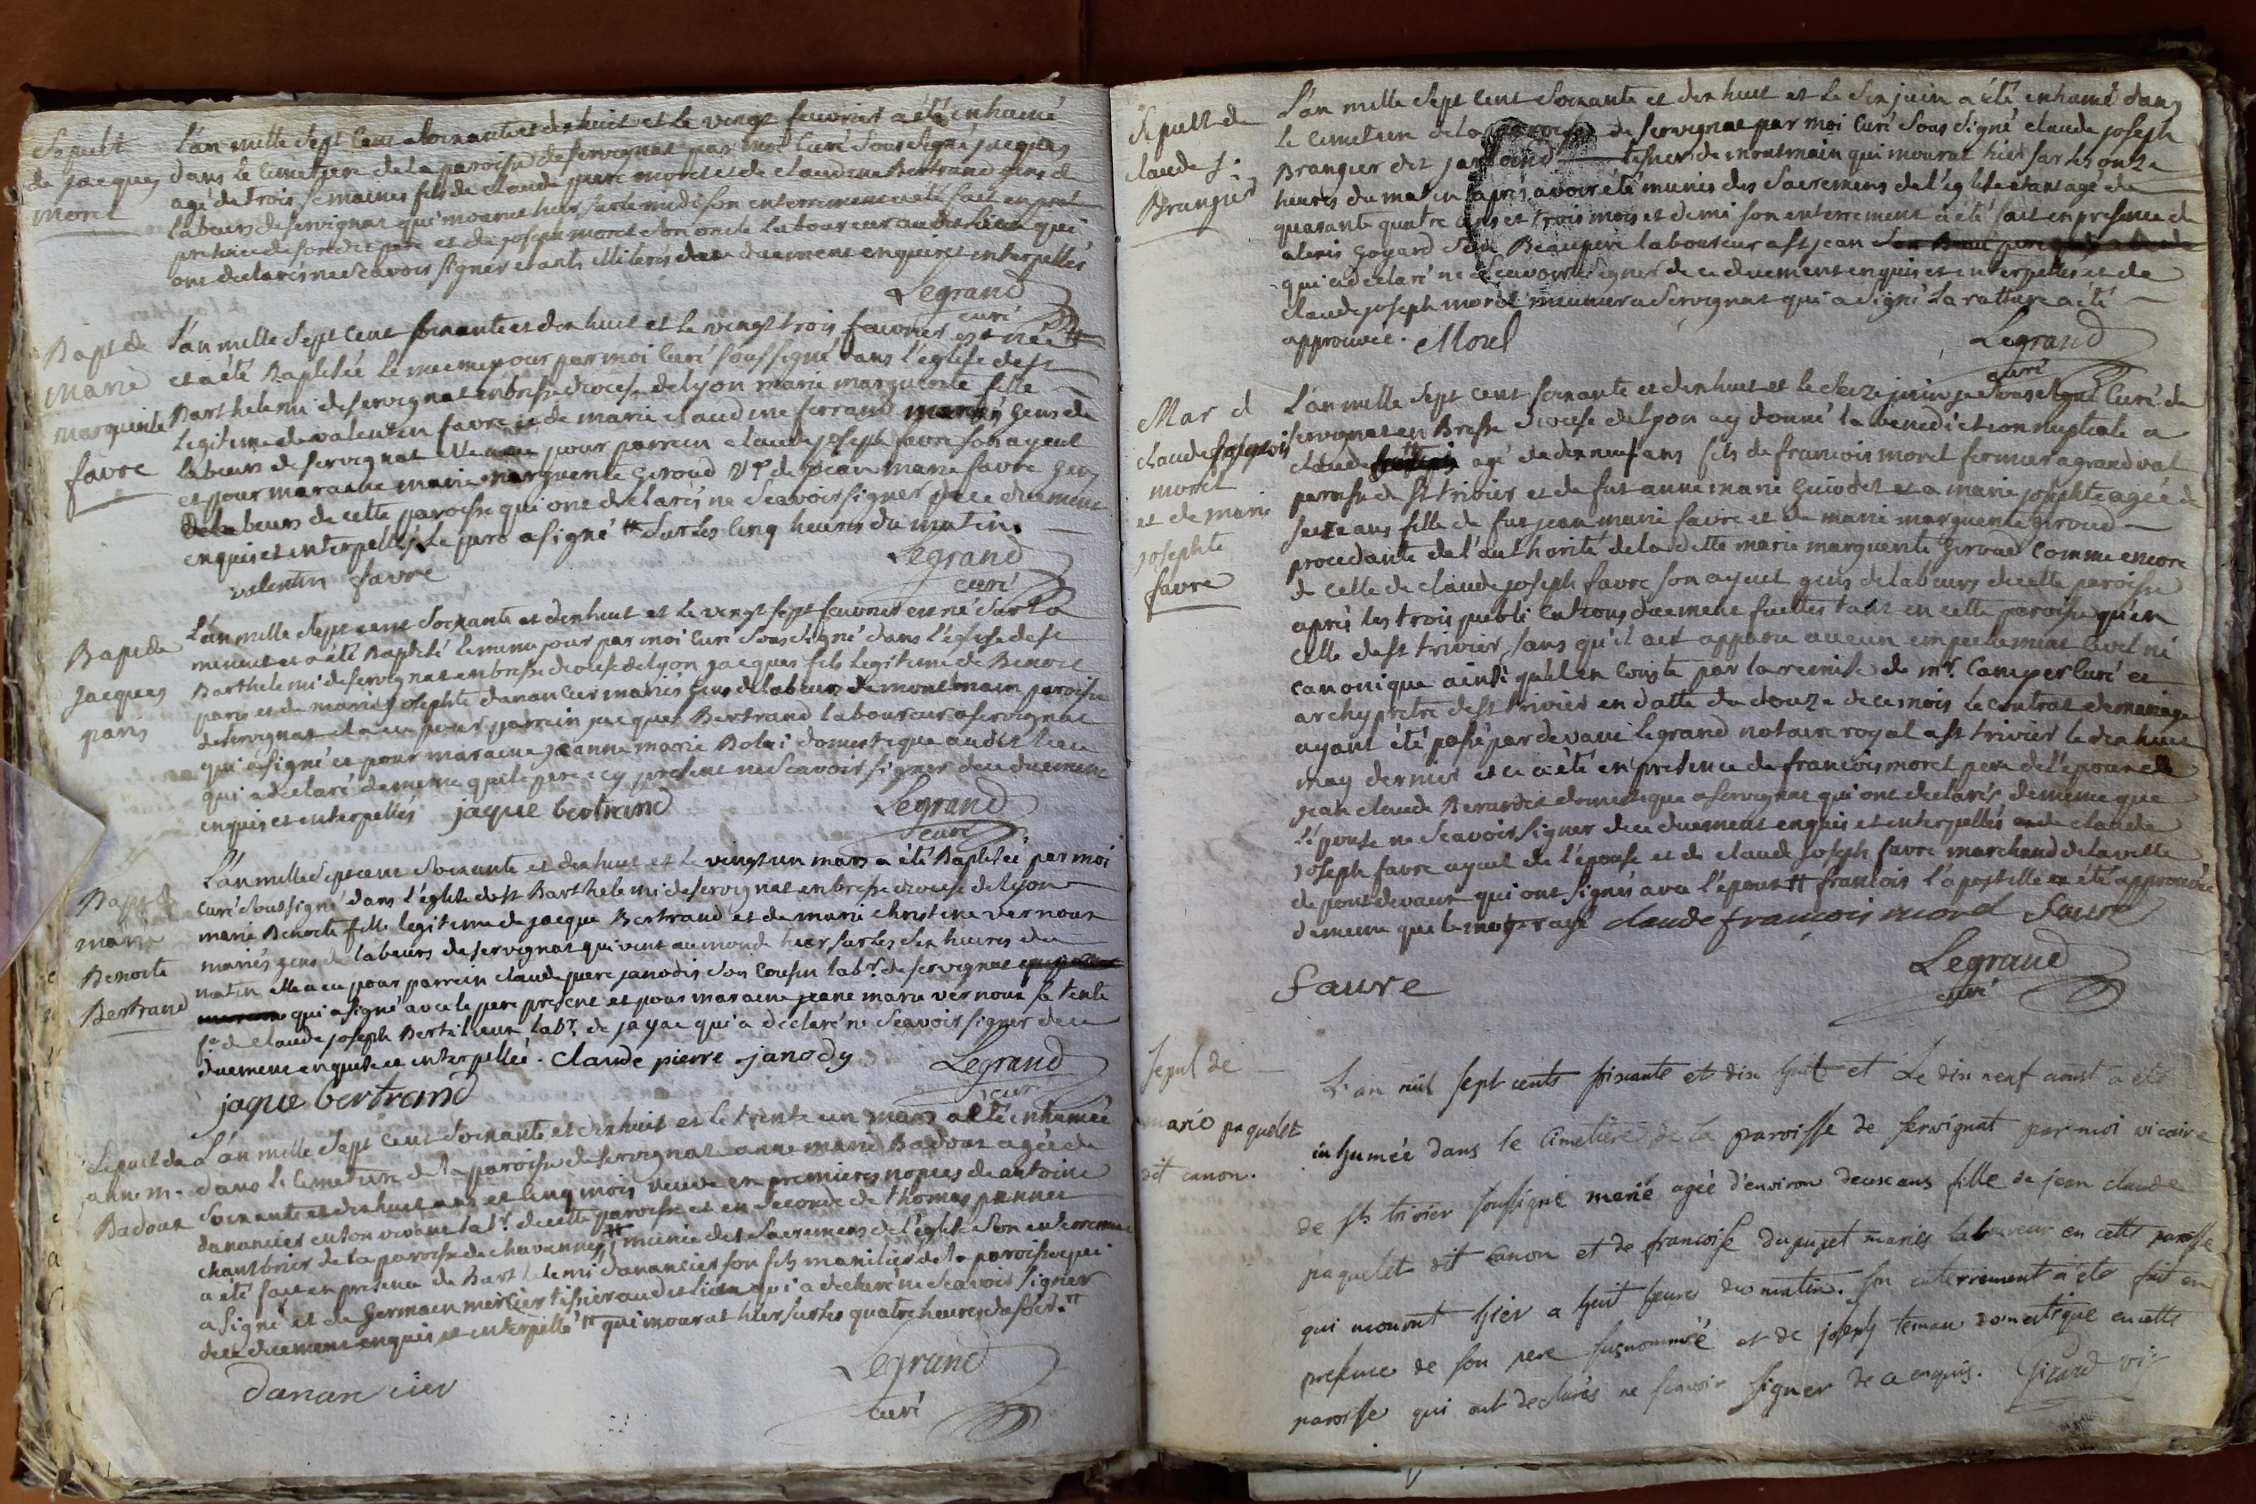 Sepult
de jacques
morel
L'an mille Sept Cent Soixante et dix huit et le vingt feuvrier a été inhumé
dans le Cimetiere de la paroisse de servignat par moi Curé Sous Signé jacques
agé de trois Semaines fils de Claude pierre morel et de claudine Bertrand gens de
labeurs de servignat qui mourut hier sur le midi son enterrement a été fait en pre
presence de son dit pere et de joseph morel son oncle laboureur au dit lieu qui
ont declarés ne Sçavoir signer etants illiterés de ce duement enquis et interpellés
Legrand
curé
Bapt de
marie
marguerite
favre
L'an mille Sept Cent soixante et dix huit et le vingt trois fauvrier est née #
et a été Baptisée le meme jour par moi Curé Soussigné dans l'eglise de st
Barthelemi de servignat en bresse diocese de lyon marie marguerite fille
legitime de valentin favre et de marie claudine ferrand mariés gens de
labeurs de servignat elle a eu pour parrein claude joseph favre son ayeul
et pour maraine marie marguerite Giroud Vve de jean marie favre gens
de labeurs de cette paroisse qui ont declarés ne Sçavoir signer de ce duement
enquis et interpellés Le pere a signé # Sur les Cinq heures du matin.
valentin favre
Legrand
curé
Bapt de
Jacques
paris
L'an mille Sept cent Soixante et dix huit et le vingt sept feuvrier est né Sur la
minuit et a été Baptisé le meme jour par moi Curé Sous Signé dans l'eglise de st
Barthelemi de servignat en bresse diocese de lyon jacques fils legitime de Benoit
paris et de marie josephte danancier mariés Gens de labeurs de montmain paroisse
de servignat il a eu pour parrein jacques Bertrand laboureur a servignat
qui a signé et pour maraine jeanne marie Bolai domestique au dit lieu
qui a declaré de meme que le pere icy present ne Scavoir signer de ce duement
enquis et interpellés jaque bertrand
Legrand
curé
Bapt de
marie
Benoite
Bertrand
L'an mille Sept cent Soixante et dix huit et le vingt un mars a été Baptisée par moi
Curé Soussigné dans l'église de st Barthelemi de servignat en bresse diocese de lyon
marie Benoite fille legitime de jacque Bertrand et de marie christine vernoux
mariés gens de labeurs de servignat qui vint au monde hier sur les dix heures du
matin elle a eu pour parrein claude pierre janodis son Cousin labr. de servignat
qui a signé avec le pere present et pour maraine jeane marie vernoux sa tente
fe de claude joseph Bertilleur labr. de jayac qui a declaré ne Sçavoir signer de ce
duement enquise et interpellée. Claude pierre janody
jaque bertrand
Legrand
curé
Sepult de
anne m.
Badoux
L'an mille Sept Cent Soixante et dix huit et le trente un mars a été inhumée
dans le Cimetiere de la paroisse de servignat anne marie Badoux agée de
Soixante et dix huit ans et Cinq mois veuve en premieres nopces de antoine
dananvier en son vivant labr. de cette paroisse et en Seconde de thomas pannet
chambrier de la paroisse de chavannes # munie des Sacremens de l'église Son enterrement
a été fait en presence de Barthelemi dananvier son fils manilier de la paroisse qui
a signé et de Germain mercier tissier au dit lieu qui a declaré ne Sçavoir signer
de ce duement enquis et interpellé # qui mourut hier sur les quatre heures du soir #
Danancier
Legrand
curé
Sepult de
claude j.
Brangier
L'an mille Sept Cent Soixante et dix huit et le Six juin a été inhumé dans
le Cimetiere de la paroisse de servignat par moi Curé Sous Signé claude joseph
Brangier dit de montmain qui mourut hier sur les onze
heures du matin après avoir été munis des Sacremens de l'église etant agé de
quarante quatre ans et trois mois et demi son enterrement a été fait en presence de
alexis Goyard Son Beaupere laboureur a st jean
qui a declaré ne Sçavoir signer de ce duement enquis et interpellés et de
claude joseph morel meunier a Servignat qui a signé la rature a été
approuvée. Morel
Legrand
curé
Mar d
claude françois
morel
et de marie
josephte
favre
L'an mille Sept cent Soixante et dix huit et le seize juin je Sous Signé Curé de
servignat en Bresse diocese de lyon ay donné la benediction nuptiale a
claude # agé de dix neuf ans fils de francois morel fermier a grandval
paroisse de st trivier et de fut anne marie Guiodet et a marie josephte agée de
seize ans fille de fut jean marie favre et de marie marguerite giroud
procedante de l'authorité de la dette marie marguerite Giroud comme encore
de celle de claude joseph favre son ayeul gens de labeurs de cette paroisse
après les trois publications duement faittes tant en cette paroisse qu'en
celle de st trivier, sans qu'il ait apparu aucun empechement civil ni
canonique ainsi qu'il en conste par la remise de mr. Camper curé et
archypretre de st trivier en datte du douze de ce mois le contrat de mariage
ayant été passé par devant Legrand notaire royal a st trivier le dix huit
may dernier et ce a été en presence de francois morel pere de l'epoux et de
jean claude Berardet domestique a servignat qui ont declarés de meme que
l'epouse ne Sçavoir Signer de ce duement enquis et interpellés et de claude
joseph favre ayeul de l'épouse et de claude joseph favre marchand de la ville
de pont de vaux qui ont signés avec l'epoux # francois l'apostille a été approuvée
de meme que le mot rayé claude francois morel favre
favre
Legrand
curé
Sepul de
marie paquelet
dit canon.
L'an mil sept cents soixante et dix huit et Le dix neuf aoust a été
inhumée dans le Cimetiere de la paroisse de servignat par moi vicaire
de st trivier soussigné marie agée d'environ deux ans fille de jean claude
paquelet dit Canon et de francoise dupuget mariés laboureur en cette paroisse
qui mourut hier a huit heure du matin. son enterrement a été fait en
presence de son pere susnommé et de joseph teman domestique en cette
paroisse qui ont declarés ne scavoir signer de ce enquis. Girard vic